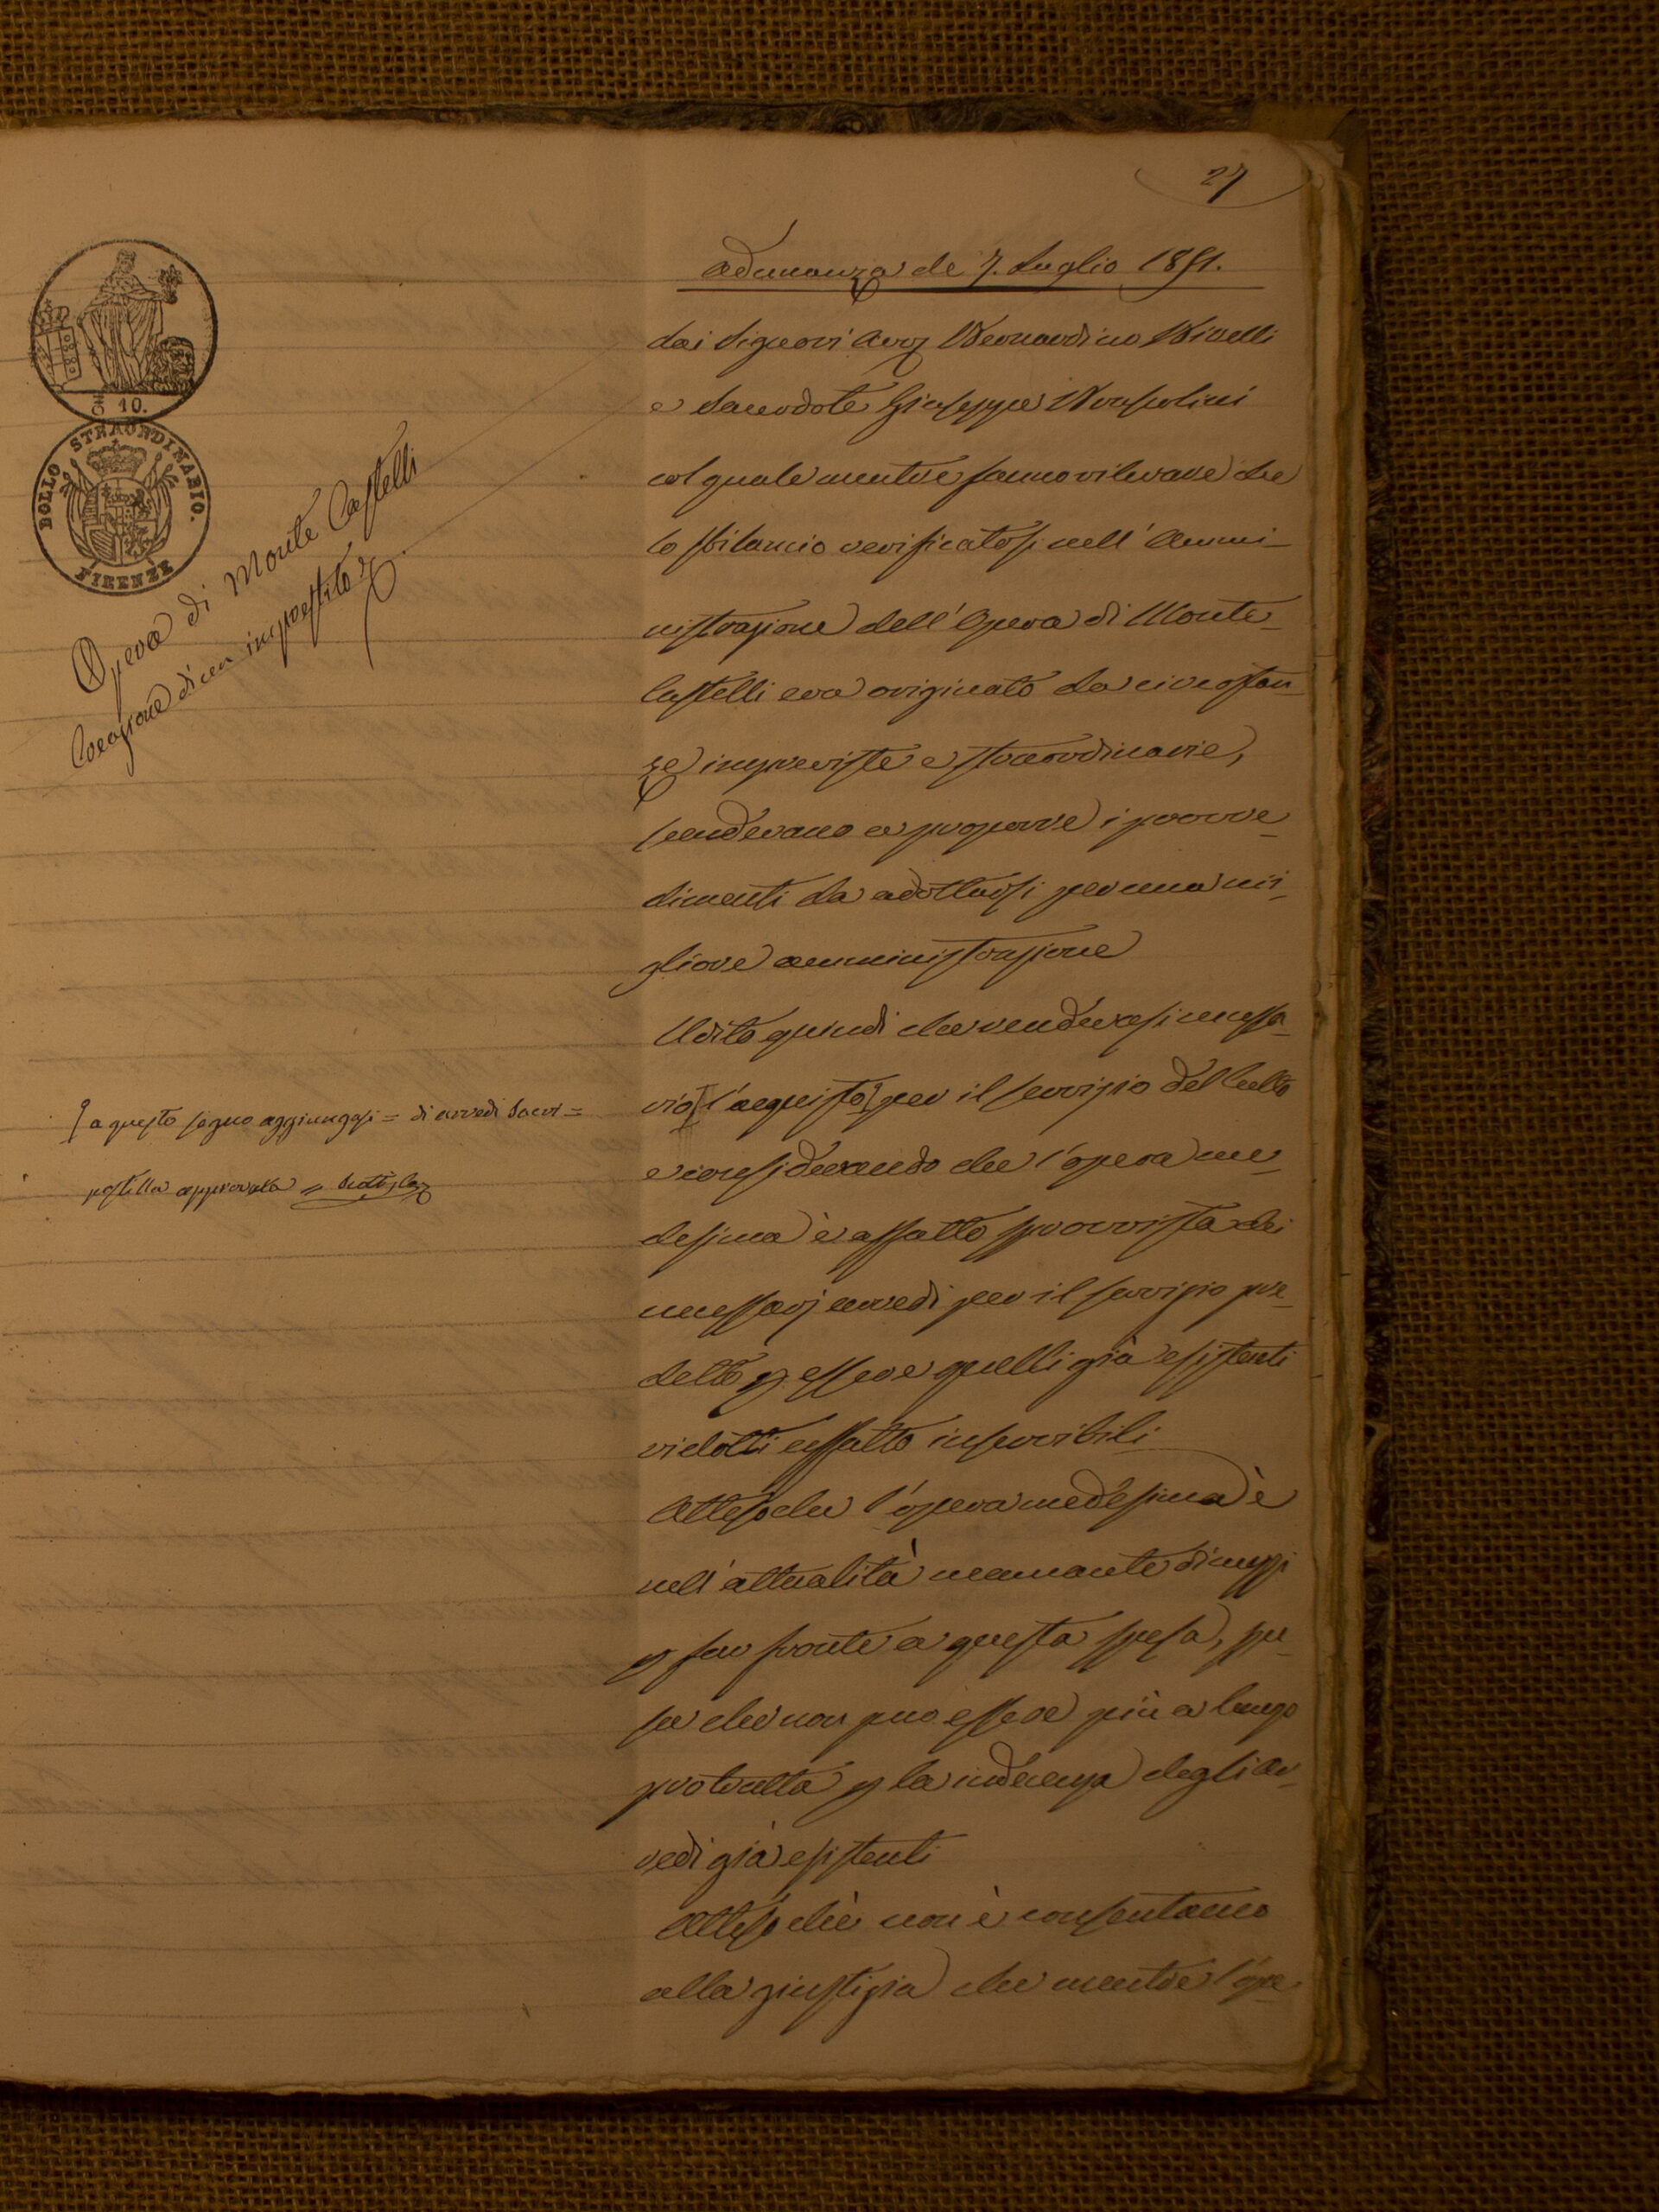 27
Adunanza de 7. Luglio 1851.
dai Signori Avv Bernardino Binelli
e Sacerdote Giuseppe
col quale mentre fanno rilevare che
lo sbilancio verificatosi nell' Ammi-
nistrazione dell' Opera di Monte-
Castelli era originato da circostan
ze impreviste e straordinarie,
scendevano a proporre i provve
dimenti da adottarsi per una mi-
gliore amministrazione
Udito quindi che rendevasi necessa-
rio l'acquisto per il servizio del Culto
e considerando che l'opera me-
desima è affatto sprovvista dei
necessarj arredi per il servizio pre-
detto p essere quelli già esistenti
ridotti affatto inservibili
Atteso che l'opera medesima è
nell'attualità mancante di mezzi
p far fronte a questa spesa, spe-
sa che non puo essere più a lungo
protratta p la indecenza degli ar-
redi già esistenti
Atteso chè non è consentaneo
alla giustizia che mentre l'ope
10.
BOLLO STRAORDINARIO.
FIRENZE
Opera di Monte Castelli
Creazione di un imprestito
a questo segno aggiungasi = di arredi Sacri =
postilla approvata =